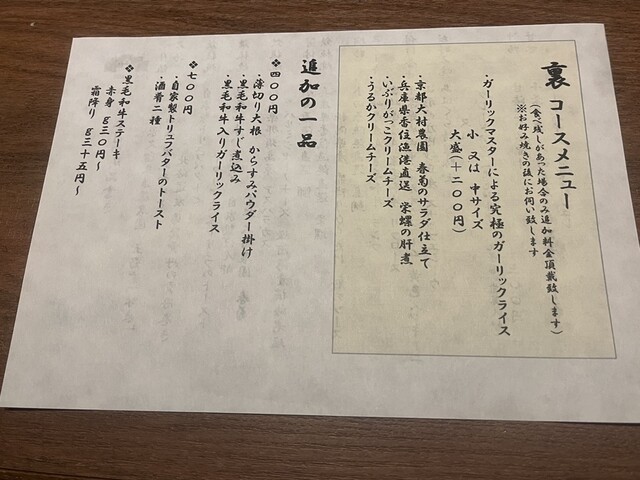 裏 コースメニュー
(食べ残しがあった場合のみ追加料金頂戴致します)
※お好み焼きの後にお伺い致します
・ガーリックマスターによる究極のガーリックライス
小 又は 中サイズ
大盛(+二〇〇円)
・京都大村農園 春菊のサラダ仕立て
・兵庫県香住漁港直送 栄螺の肝煮
・いぶりがっこクリームチーズ
・うるかクリームチーズ
追加の一品
❖四〇〇円
・薄切り大根 からすみパウダー掛け
・黒毛和牛すじ煮込み
・黒毛和牛入りガーリックライス
❖七〇〇円
・自家製トリュフバターのトースト
・酒肴二種
❖黒毛和牛ステーキ
赤身 g三〇円〜
霜降り g三十五円〜